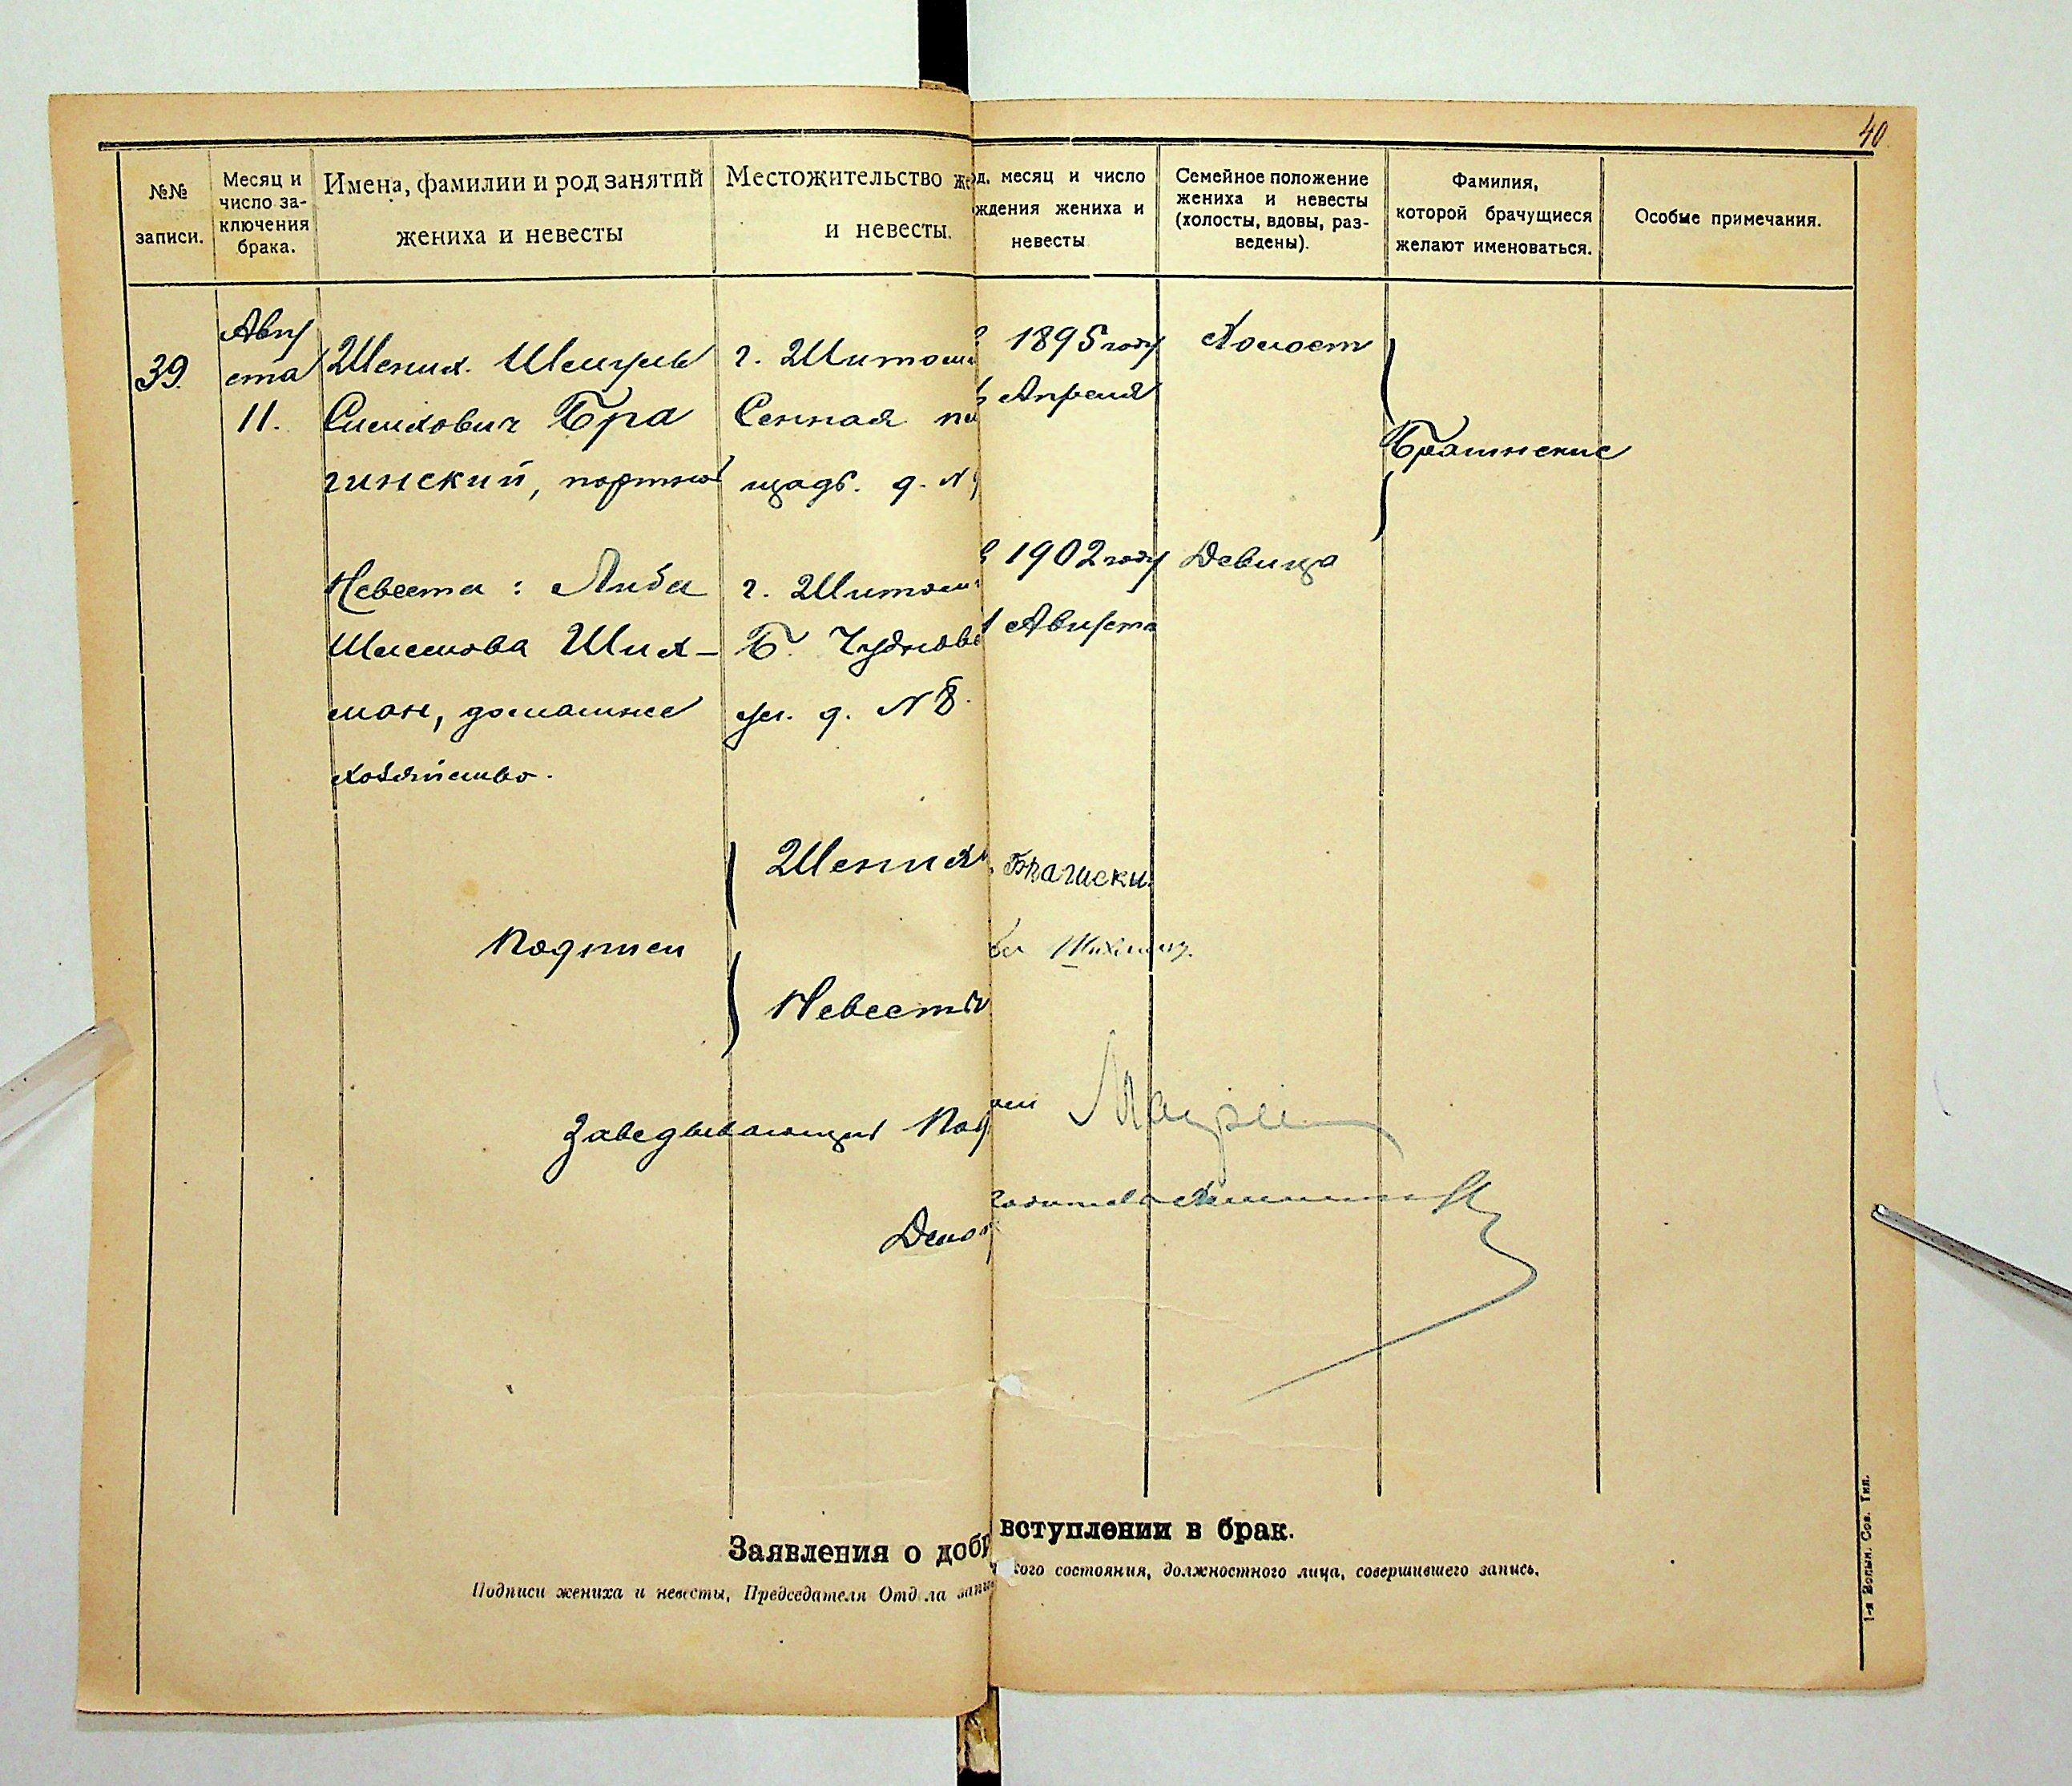 40
№№ записи.
Месяц и число заключения брака.
Имена, фамилии и род занятий
жениха и невесты
Местожительство же
и невесты.
од, месяц и число
ждения жениха и
невесты
Семейное положение
жениха и невесты
(холосты, вдовы, раз-
ведены).
Фамилия,
которой брачущиеся
желают именоваться.
Особые примечания.
39.
Авгу
ста
11.
Жених.
Бра
гинский, портной
г. Житоми
Сенная пл
щадь. д. №
1895 году
Апреля
Холост
Брагинские
Невеста: Либа
Ших-
ман, домашнее
хозяйство.
г. Житоми
Б. Чудновс
ул. д. № 8.
1902 году
Августа
Девица
Подписи
Жениха
Брагиски
Невесты
Шихман
Заведывающий Под
Дело
Заявления о добр
вступлении в брак.
Подписи жениха и невесты, Председателя Отд ла запи
кого состояния, должностного лица, совершившего запись.
1-я Волын. Сов. Тип.